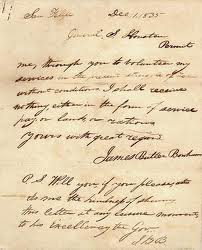 San Felipe Dec 1, 1835
General, S. Houston
Permit
me, through you to volunteer my
services in the present
without conditions I shall receive
nothing either in the form of service
pay, or lands or rations
Yours with great regard
James Butler Bonham
P.S. Will you if you please, also
do me the
this letter at any leisure moments
to his excellency the Gov.
J.B.B